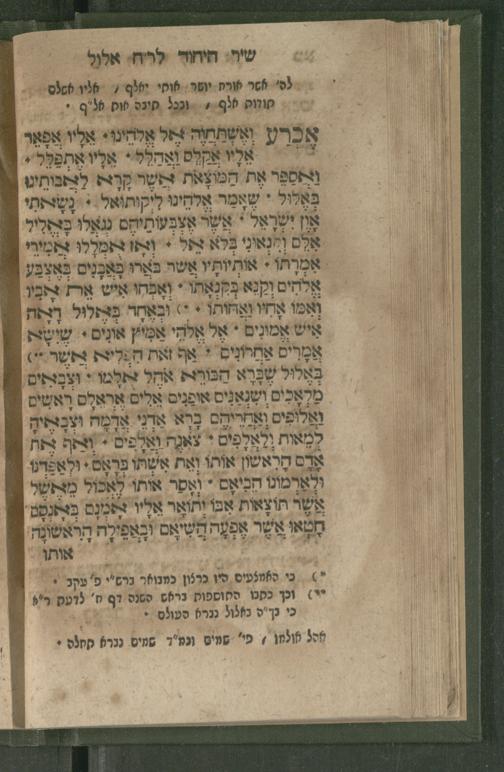 שיר היחוד לר״ח אלול
לה׳ אשר אורח יושר אותי יאלף , אליו אשלם
תודות אלף , ובכל תיבה אות אל״ף •
אֶכְרַע וְאֶשְׁתַּחֲוֶה אֶל אֱלֹהֵינוּ • אֵלָיו אֲפָאֵר
אֵלָיו אֲקַלֵּס וַאֲהַלֵּל • אֵלָיו אֶתְפַּלֵּל •
וַאֲסַפֵּר אֶת הַמּוֹצָאֹת אֲשֶׁר קָרָא לַאֲבוֹתֵינוּ
בֶּאֱלוּל • שֶׁאָמַר אֱלֹהֵינוּ לִיקוּתוֹאֵל • נָשָׂאתִי
אָוֶן יִשְׂרָאֵל • אֲשֶׁר אֶצְבְּעוֹתֵיהֶם נִגְאֲלוּ בֶּאֱלִיל
אִלֵּם וְקִנְאוּנִי בְּלֹא אֵל • וְאָז אִמְלְלוּ אֲמִירֵי
אִמְרָתוֹ • אוֹתִיוֹתָיו אֲשֶׁר בֹּאֲרוּ בַּאֲבָנִים בְּאֶצְבַּע
אֱלֹהִים וְקִנֵּא בְּקִנְאָתוֹ • וְאָבְחוּ אִישׁ אֶת אָבִיו
וְאִמּוֹ אָחִיו וַאֲחוֹתוֹ • *) וּבְאֶחָד בֶּאֱלוּל דָאָה
אִישׁ אֱמוּנִים • אֶל אֱלֹהֵי אַמִּיץ אוֹנִים • שֶׁיִּשָּׂא
אֲמָרִים אַחֲרוֹנִים • אַף זֹאת הַפְּלִיא אֲשֶׁר **)
בֶּאֱלוּל שֶׁבָּרָא הַבּוֹרֵא אֹהֶל אֻלָּמוֹ • וּצְבָאִים
מַלְאָכִים וְשִׁנְאַנִּים אוֹפַנִּים אֵלִים אֶרְאֶלָּם רָאשִׁים
וְאַלּוּפִים וְאַחֲרֵיהֶם בָּרָא אֲדֹנָי אֲדָמָה וּצְבָאֶיהָ
לְמֵאוֹת וְלַאֲלָפִים • צֹאנֶה וַאֲלָפִים • וְאַף אֶת
אָדָם הָרִאשׁוֹן אוֹתוֹ וְאֶת אִשְׁתּוֹ בְּרָאָם • וּלְאַפַּדְנוֹ
וּלְאַרְמוֹנוֹ הֱבִיאָם • וְאָסַר אוֹתוֹ לֶאֱכוֹל מֵאֵשֶׁל
אֲשֶׁר תּוֹצָאוֹת אִבּוֹ יְתוֹאַר אֵלָיו אָמְנָם בְּאָנְסָם
חָטְאוּ אֲשֶׁר אֶפְעֶה הִשִּׁיאָם וּבַאֲפֵילָה הָרִאשׁוֹנָה
אותו
*) כי האמצעים היו ברצון כמבואר ברש״י פ׳ עקב •
**) וכך כתבו התוספות בראש השנה דף ח׳ לדעת ר״א
כי בך״ה באלול נברא העולם •
אהל אולמו , פי׳ שמים ובמ״ד שמים נברא תחלה •